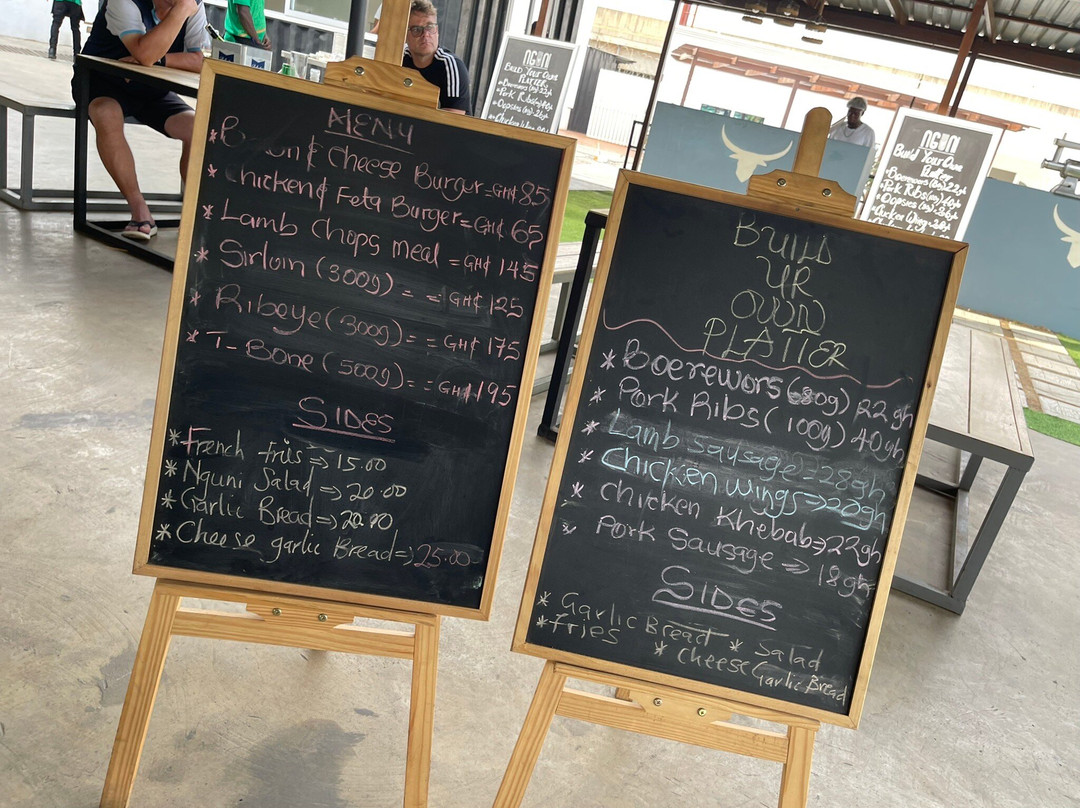 MENU
& Cheese Burger = GH₵ 85
* Chicken & Feta Burger = GH₵ 65
* Lamb Chops meal = GH₵ 145
* Sirloin (300g) = = GH₵ 125
* Ribeye (300g) = = GH₵ 175
* T-Bone (500g) = = GH₵ 195
SIDES
* French fris => 15.00
* Nguni Salad => 20.00
* Garlic Bread => 20.00
* Cheese garlic Bread => 25.00
BUILD
UR
OWN
PLATTER
* Boerewors 22 gh
* Pork Ribs (100g) 40 gh
* Lamb sausage 28gh
* Chicken wings => 20gh
* Chicken Khebab => 22gh
* Pork Sausage => 18gh
SIDES
* Garlic Bread * Salad
* fries * Cheese Garlic Bread
NGUNI
Build Your Own
PLATTER
NGUNI
Build Your Own
Platter